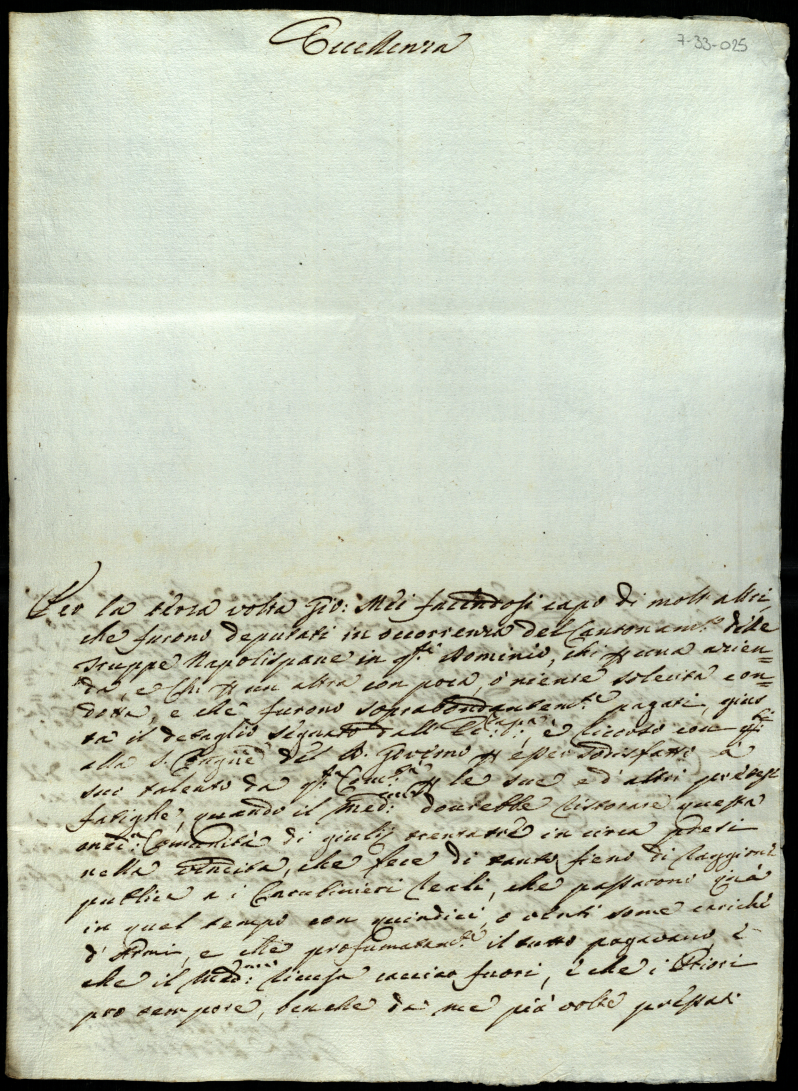 Eccellenza
7-33-025
Per la terza volta Gio: Mei facendosi capo di molti altri,
che furono deputati in occorrenza del Cantonam.to delle
truppe Napolispane in q.to Dominio, chi p una azien=
da, e chi p un altra con poca, ò niente solecita con=
dotta, e che furono soprabondantem.te pagati, gius
ta il detaglio segnato dall' è ricorso con
alla S. Cong.ne del B. Governo p esser sodisfatti à
suo talento da q.ta Com.tà p le sue ed' altri pretese
fatighe, quando il Med.mo dourebbe ristorare questa
med.ma Comunità di giulij trentatrè in circa presi
nella vendita, che fece di tanto fieno di raggione
publica a i Carabinieri Reali, che passarono quà
in quel tempo con quindici, o venti some carichi
d' Armi, e che profumatam.te il tutto pagavano è
che il Med.mo ricusa cacciar fuori, è che i Priori
pro tempore, benche da me più volte pressati